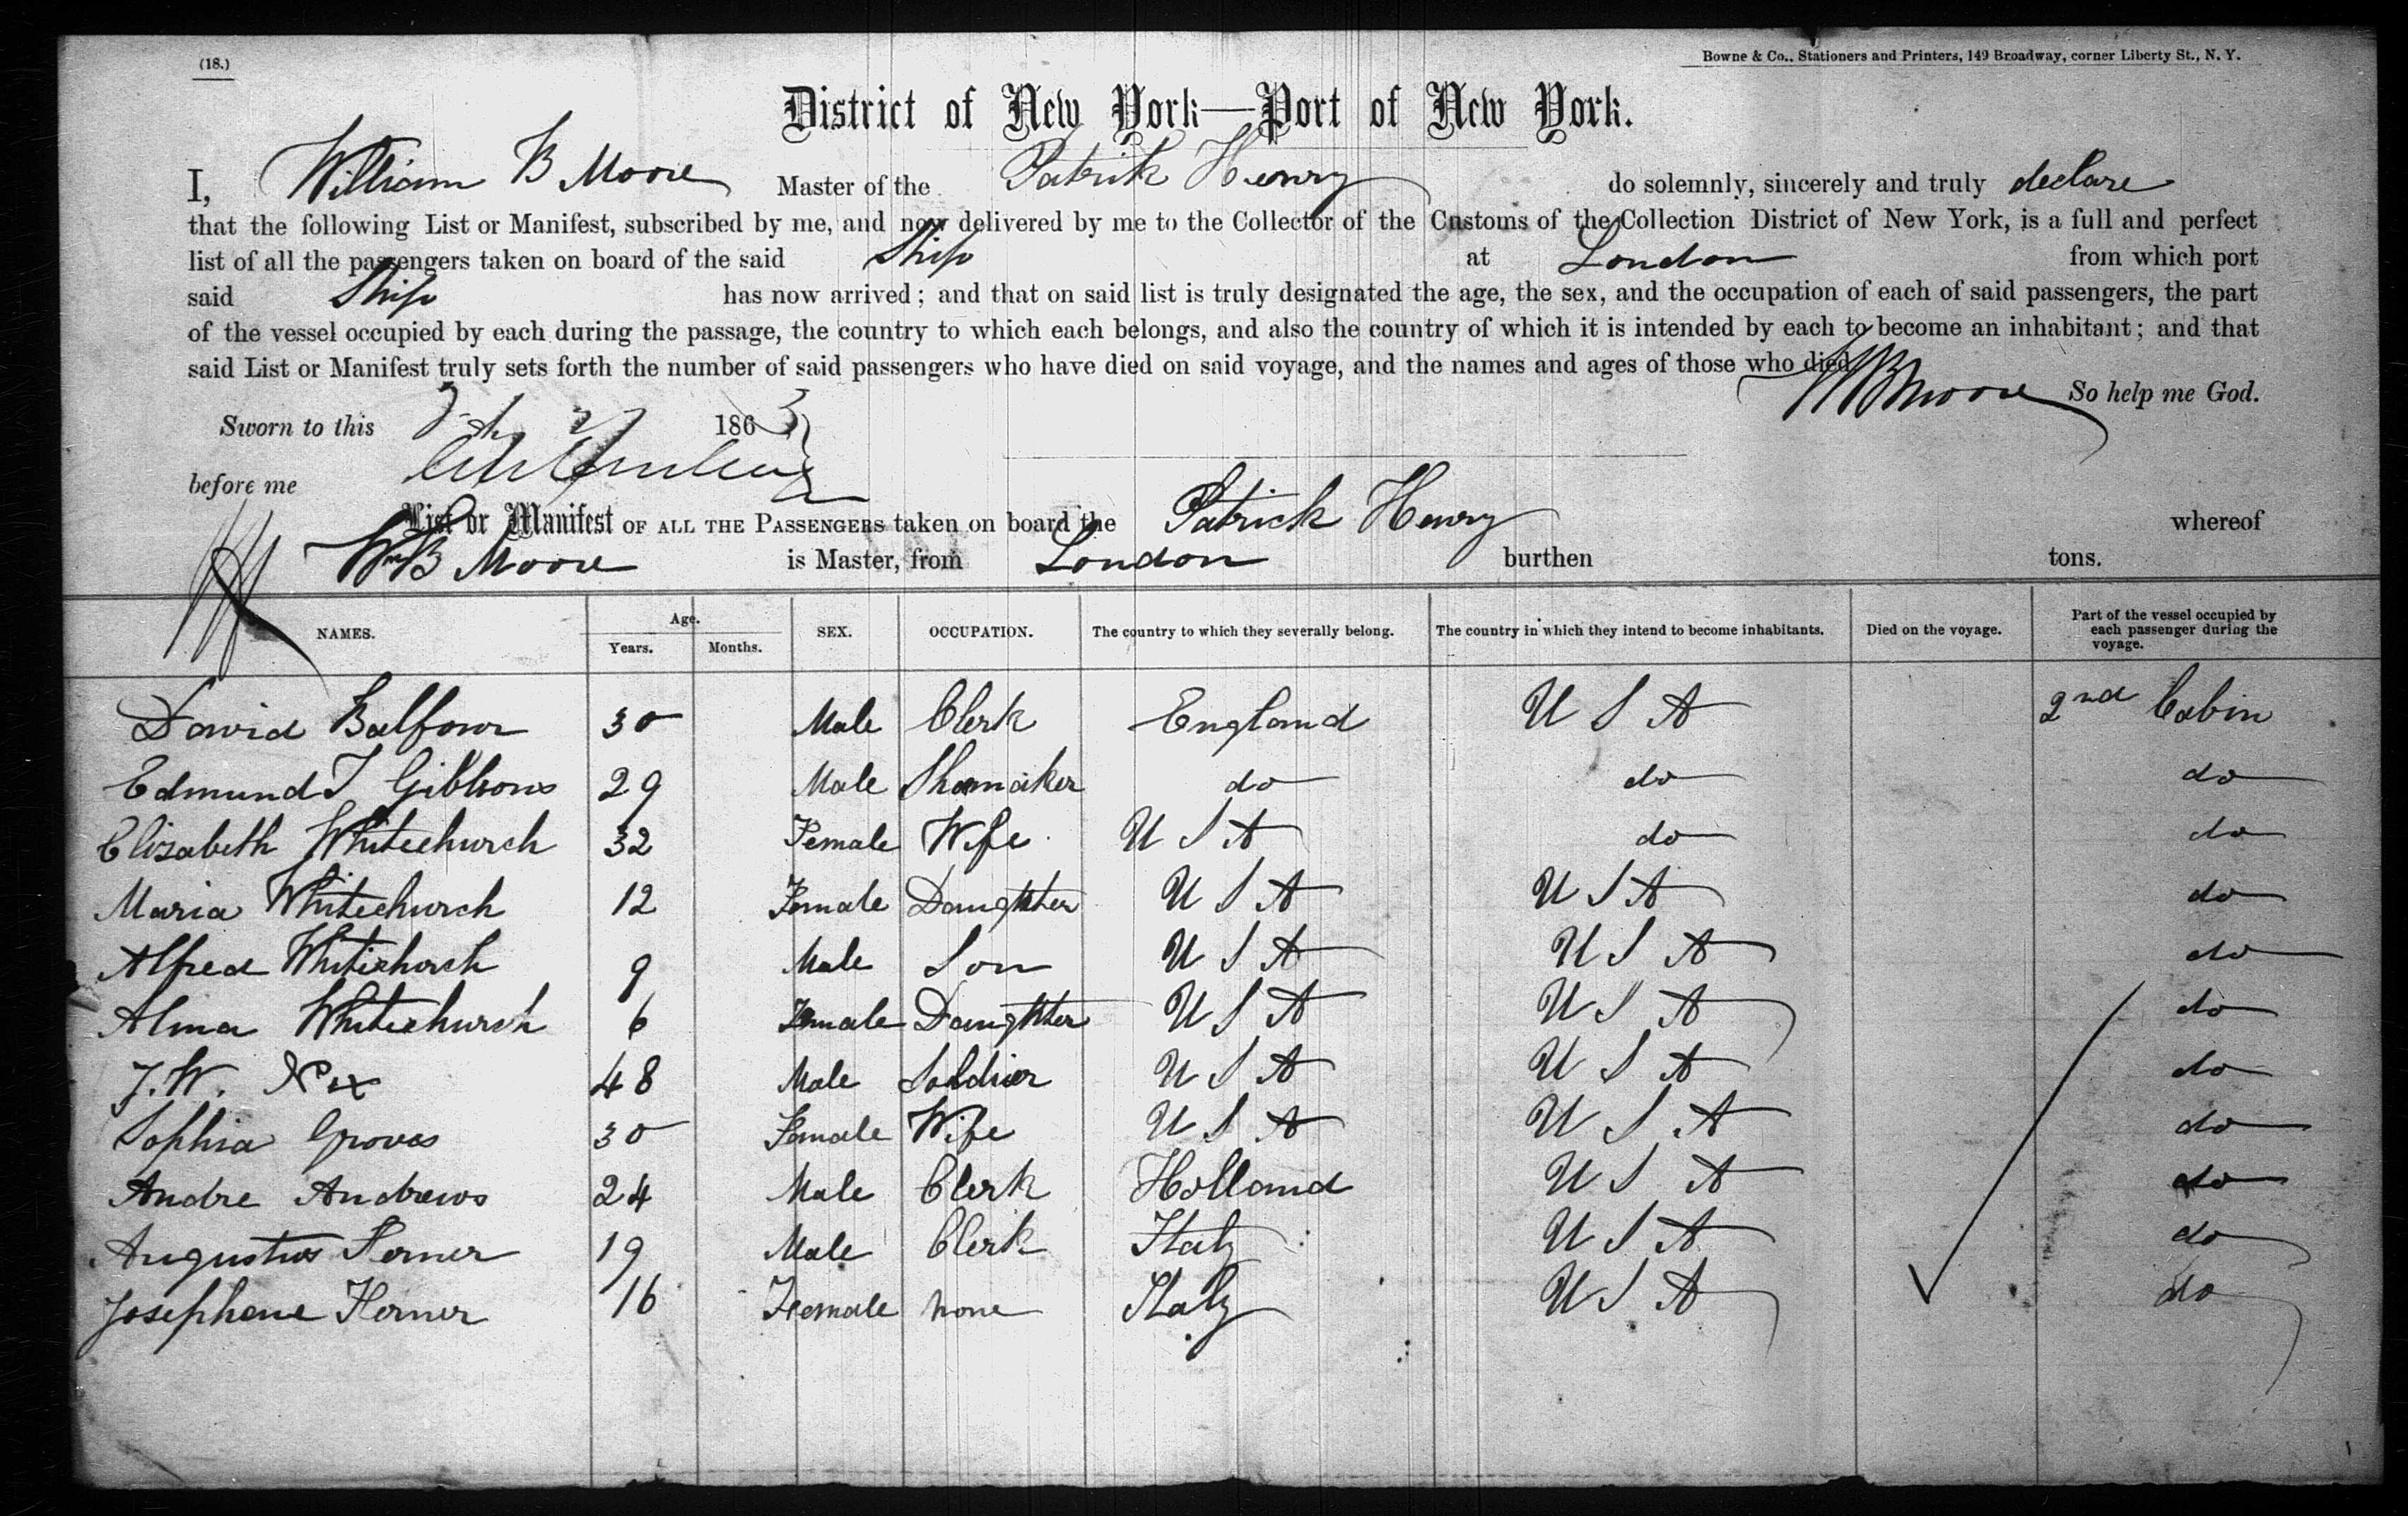 (18.)
Bowne & Co., Stationers and Printers, 149 Broadway, corner Liberty St., N. Y.
District of New York—Port of New York.
I, William B Moore Master of the Patrick Henry do solemnly, sincerely and truly declare
that the following List or Manifest, subscribed by me, and now delivered by me to the Collector of the Customs of the Collection District of New York, is a full and perfect
list of all the passengers taken on board of the said Ship at London from which port
said Ship has now arrived; and that on said list is truly designated the age, the sex, and the occupation of each of said passengers, the part
of the vessel occupied by each during the passage, the country to which each belongs, and also the country of which it is intended by each to become an inhabitant; and that
said List or Manifest truly sets forth the number of said passengers who have died on said voyage, and the names and ages of those who died.
WB Moore So help me God.
Sworn to this 1863
before me
List or Manifest OF ALL THE PASSENGERS taken on board the Patrick Henry whereof
Wm B Moore is Master, from London burthen tons.
NAMES. Age. Years. Months. SEX. OCCUPATION. The country to which they severally belong. The country in which they intend to become inhabitants. Died on the voyage. Part of the vessel occupied by each passenger during the voyage.
David Balfour 30 Male Clerk England U S A 2nd Cabin
Edmund J Gibbons 29 Male Shomaker do do do
Elizabeth Whitechurch 32 Female Wife U S A do do
Maria Whitechurch 12 Female Daughter U S A U S A do
Alfred Whitechurch 9 Male Son U S A U S A do
Alma Whitechurch 6 Female Daughter U S A U S A do
J. W. Nix 48 Male Soldier U S A U S A do
Sophia Groves 30 Female Wife U S A U S A do
Andre Andrews 24 Male Clerk Holland U S A do
Augustus Ferner 19 Male Clerk Italy U S A do
Josephene Ferner 16 Female none Italy U S A do